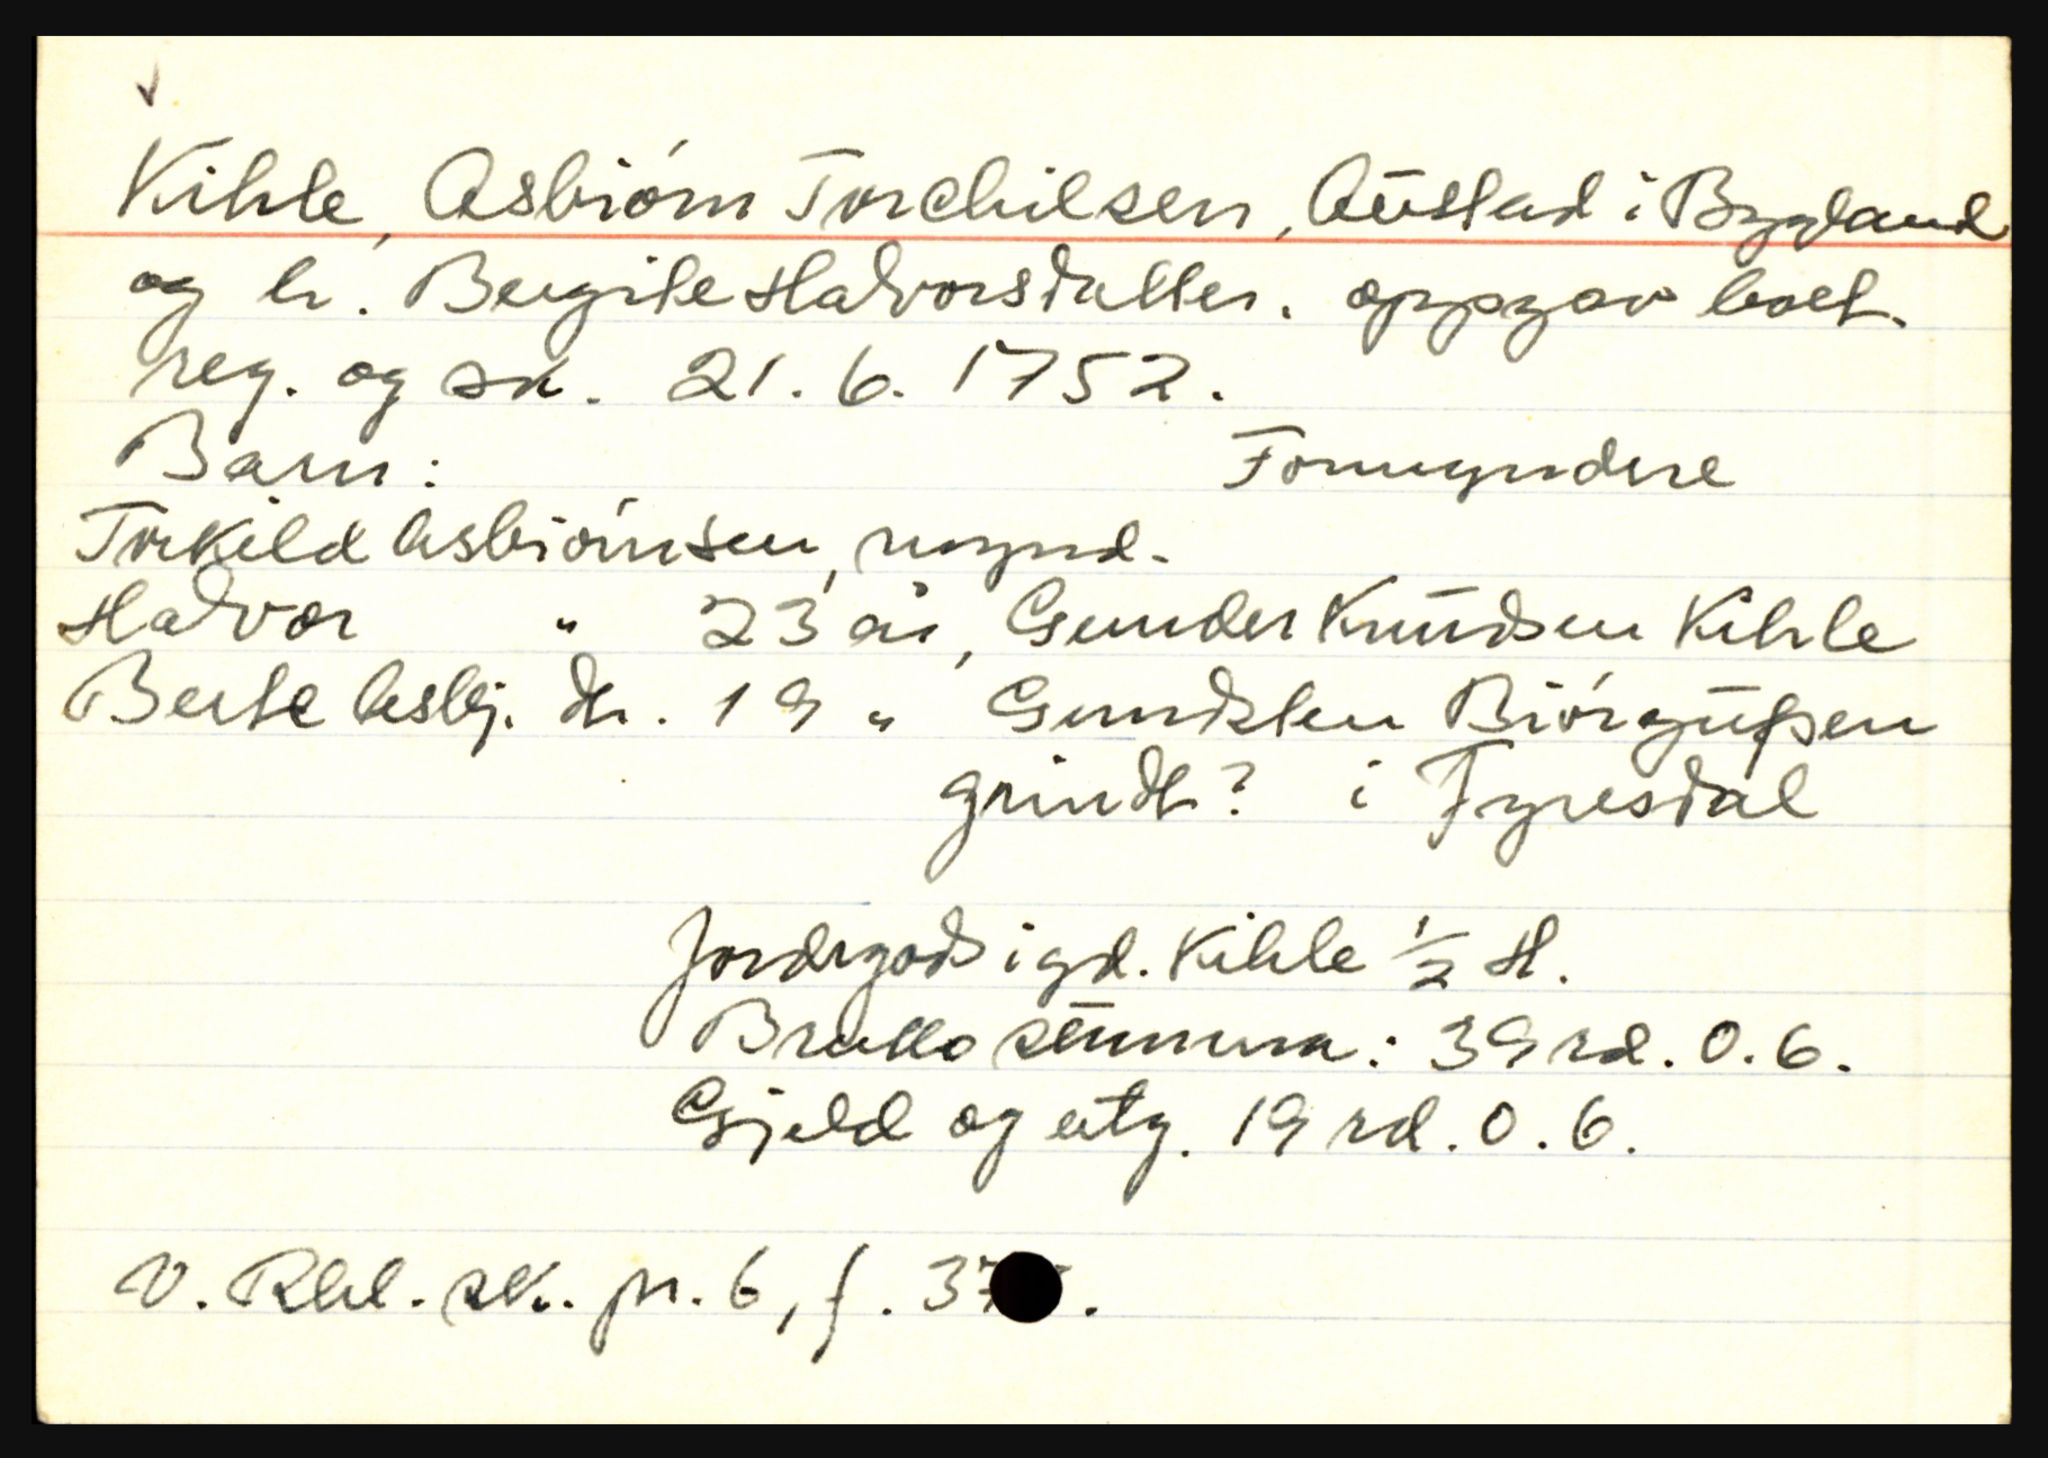 Kihle, Asbiørn Torchilsen, Austad i Bygland
og h. Bergite Halvorsdatter. oppgav boet.
reg. og sk. 21.6.1752.
Barn: Formyndere
Torkild Asbiørnsen, mynd.
Halvor " 23 år, Gunder Knudsen Kihle
Berte Asbj. dtr. 19 " Gundsten Biørgufsen
grindt? i Fyresdal
Jordegods i gd. Kihle 1/2 H.
Brutto summa: 39 rd. 0.6.
Gjeld og utg. 19 rd. 0.6.
V. Rbl. sk. pr. 6, f. 37